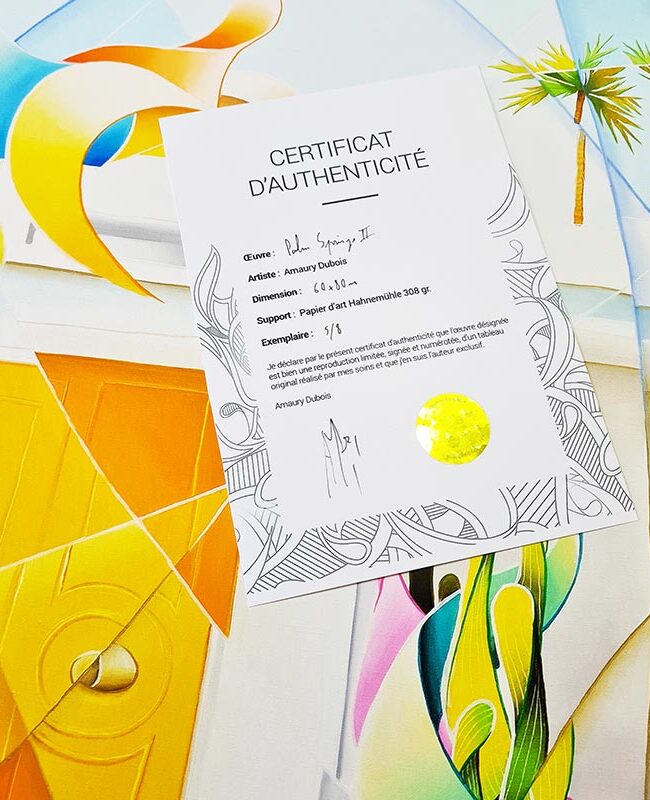 CERTIFICAT
D'AUTHENTICITÉ
Œuvre : Palm Springs II
Artiste : Amaury Dubois
Dimension : 60x80cm
Support : Papier d'art Hahnemühle 308 gr.
Exemplaire : 5/8
Je déclare par le présent certificat d'authenticité que l'œuvre désignée
est bien une reproduction limitée, signée et numérotée, d'un tableau
original réalisé par mes soins et que j'en suis l'auteur exclusif.
Amaury Dubois